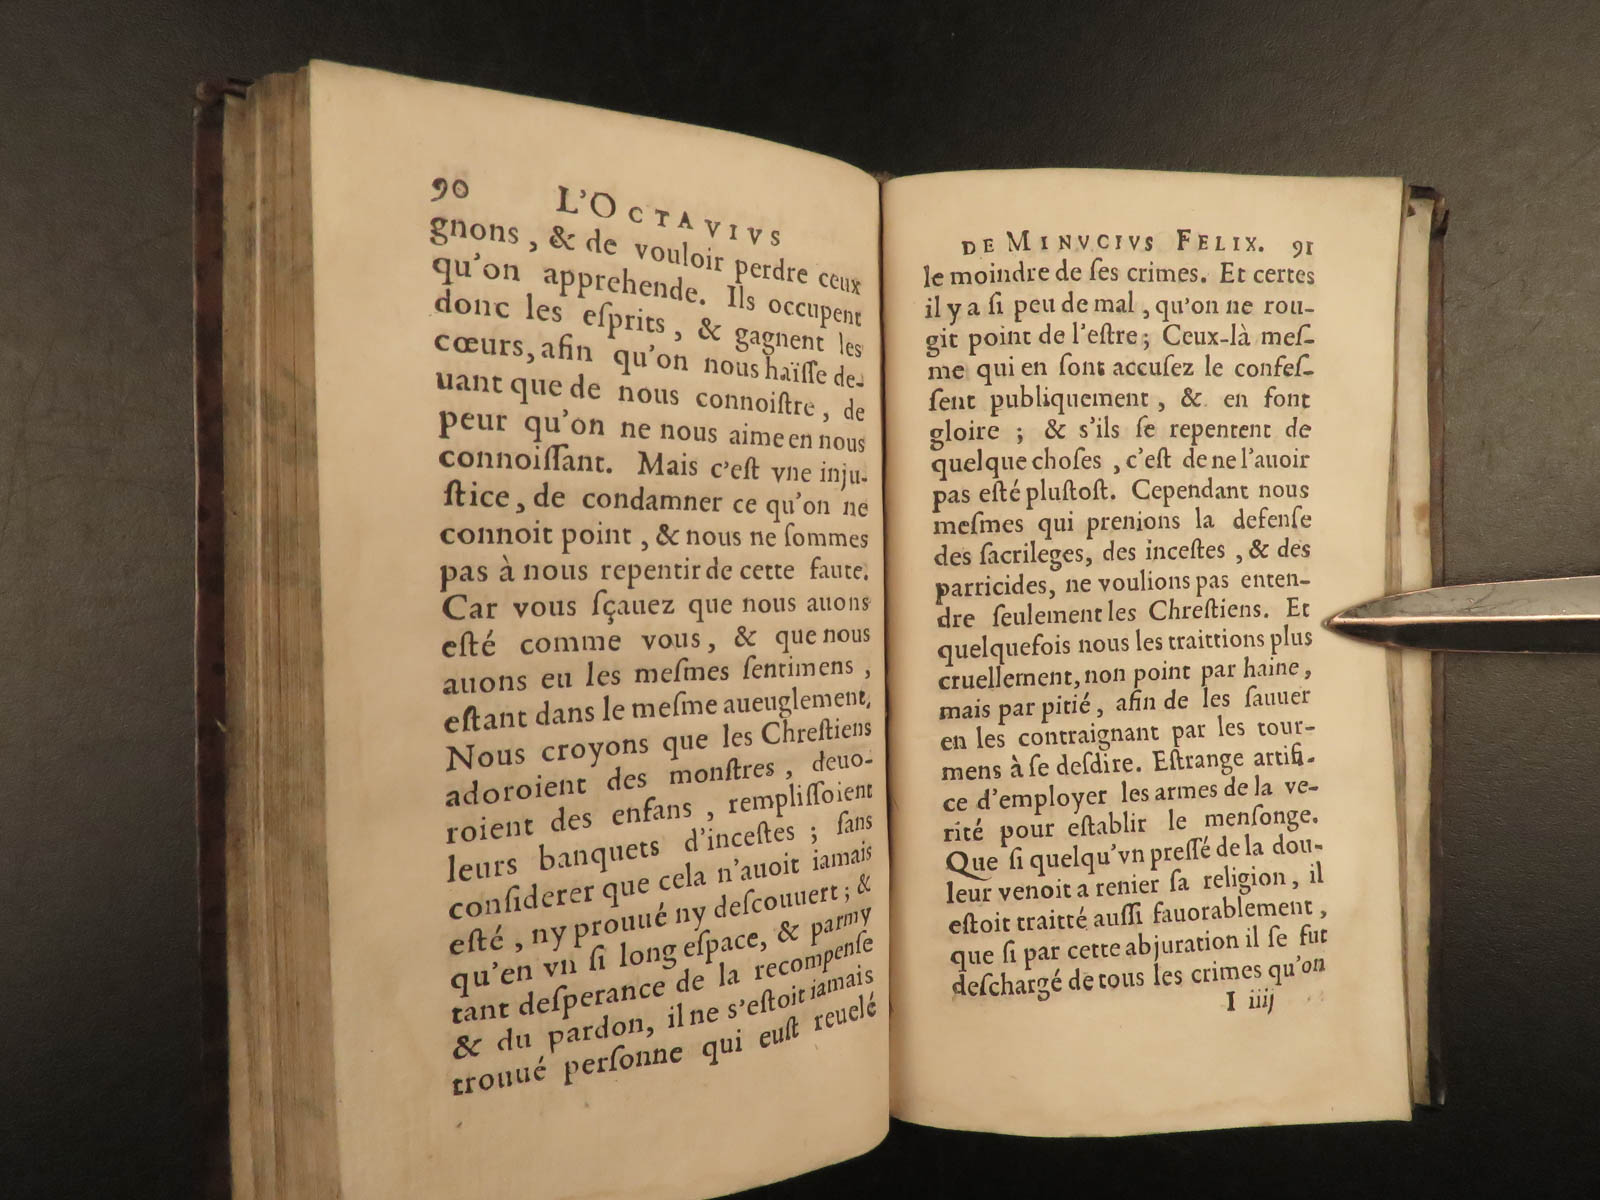 90 L'OCTAVIVS
gnons, & de vouloir perdre ceux
qu'on apprehende. Ils occupent
donc les eſprits, & gagnent les
cœurs, afin qu'on nous haïſſe de-
uant que de nous connoiſtre, de
peur qu'on ne nous aime en nous
connoiſſant. Mais c'eſt vne inju-
ſtice, de condamner ce qu'on ne
connoit point, & nous ne ſommes
pas à nous repentir de cette faute.
Car vous ſçauez que nous auons
eſté comme vous, & que nous
auons eu les meſmes ſentimens,
eſtant dans le meſme aueuglement.
Nous croyons que les Chreſtiens
adoroient des monſtres, deuo-
roient des enfans, rempliſſoient
leurs banquets d'inceſtes; ſans
conſiderer que cela n'auoit iamais
eſté, ny prouué ny deſcouuert; &
qu'en vn ſi long eſpace, & parmy
tant deſperance de la recompenſe
& du pardon, il ne s'eſtoit iamais
trouué perſonne qui euſt reuelé
DE MINVCIVS FELIX. 91
le moindre de ſes crimes. Et certes
il y a ſi peu de mal, qu'on ne rou-
git point de l'eſtre; Ceux-là meſ-
me qui en ſont accuſez le confeſ-
ſent publiquement, & en font
gloire; & s'ils ſe repentent de
quelque choſes, c'eſt de ne l'auoir
pas eſté pluſtoſt. Cependant nous
meſmes qui prenions la defenſe
des ſacrileges, des inceſtes, & des
parricides, ne voulions pas enten-
dre ſeulement les Chreſtiens. Et
quelquefois nous les traittions plus
cruellement, non point par haine,
mais par pitié, afin de les ſauuer
en les contraignant par les tour-
mens à ſe deſdire. Eſtrange artifi-
ce d'employer les armes de la ve-
rité pour eſtablir le menſonge.
Que ſi quelqu'vn preſſé de la dou-
leur venoit a renier ſa religion, il
eſtoit traitté auſſi fauorablement,
que ſi par cette abjuration il ſe fut
deſchargé de tous les crimes qu'on
I iiij